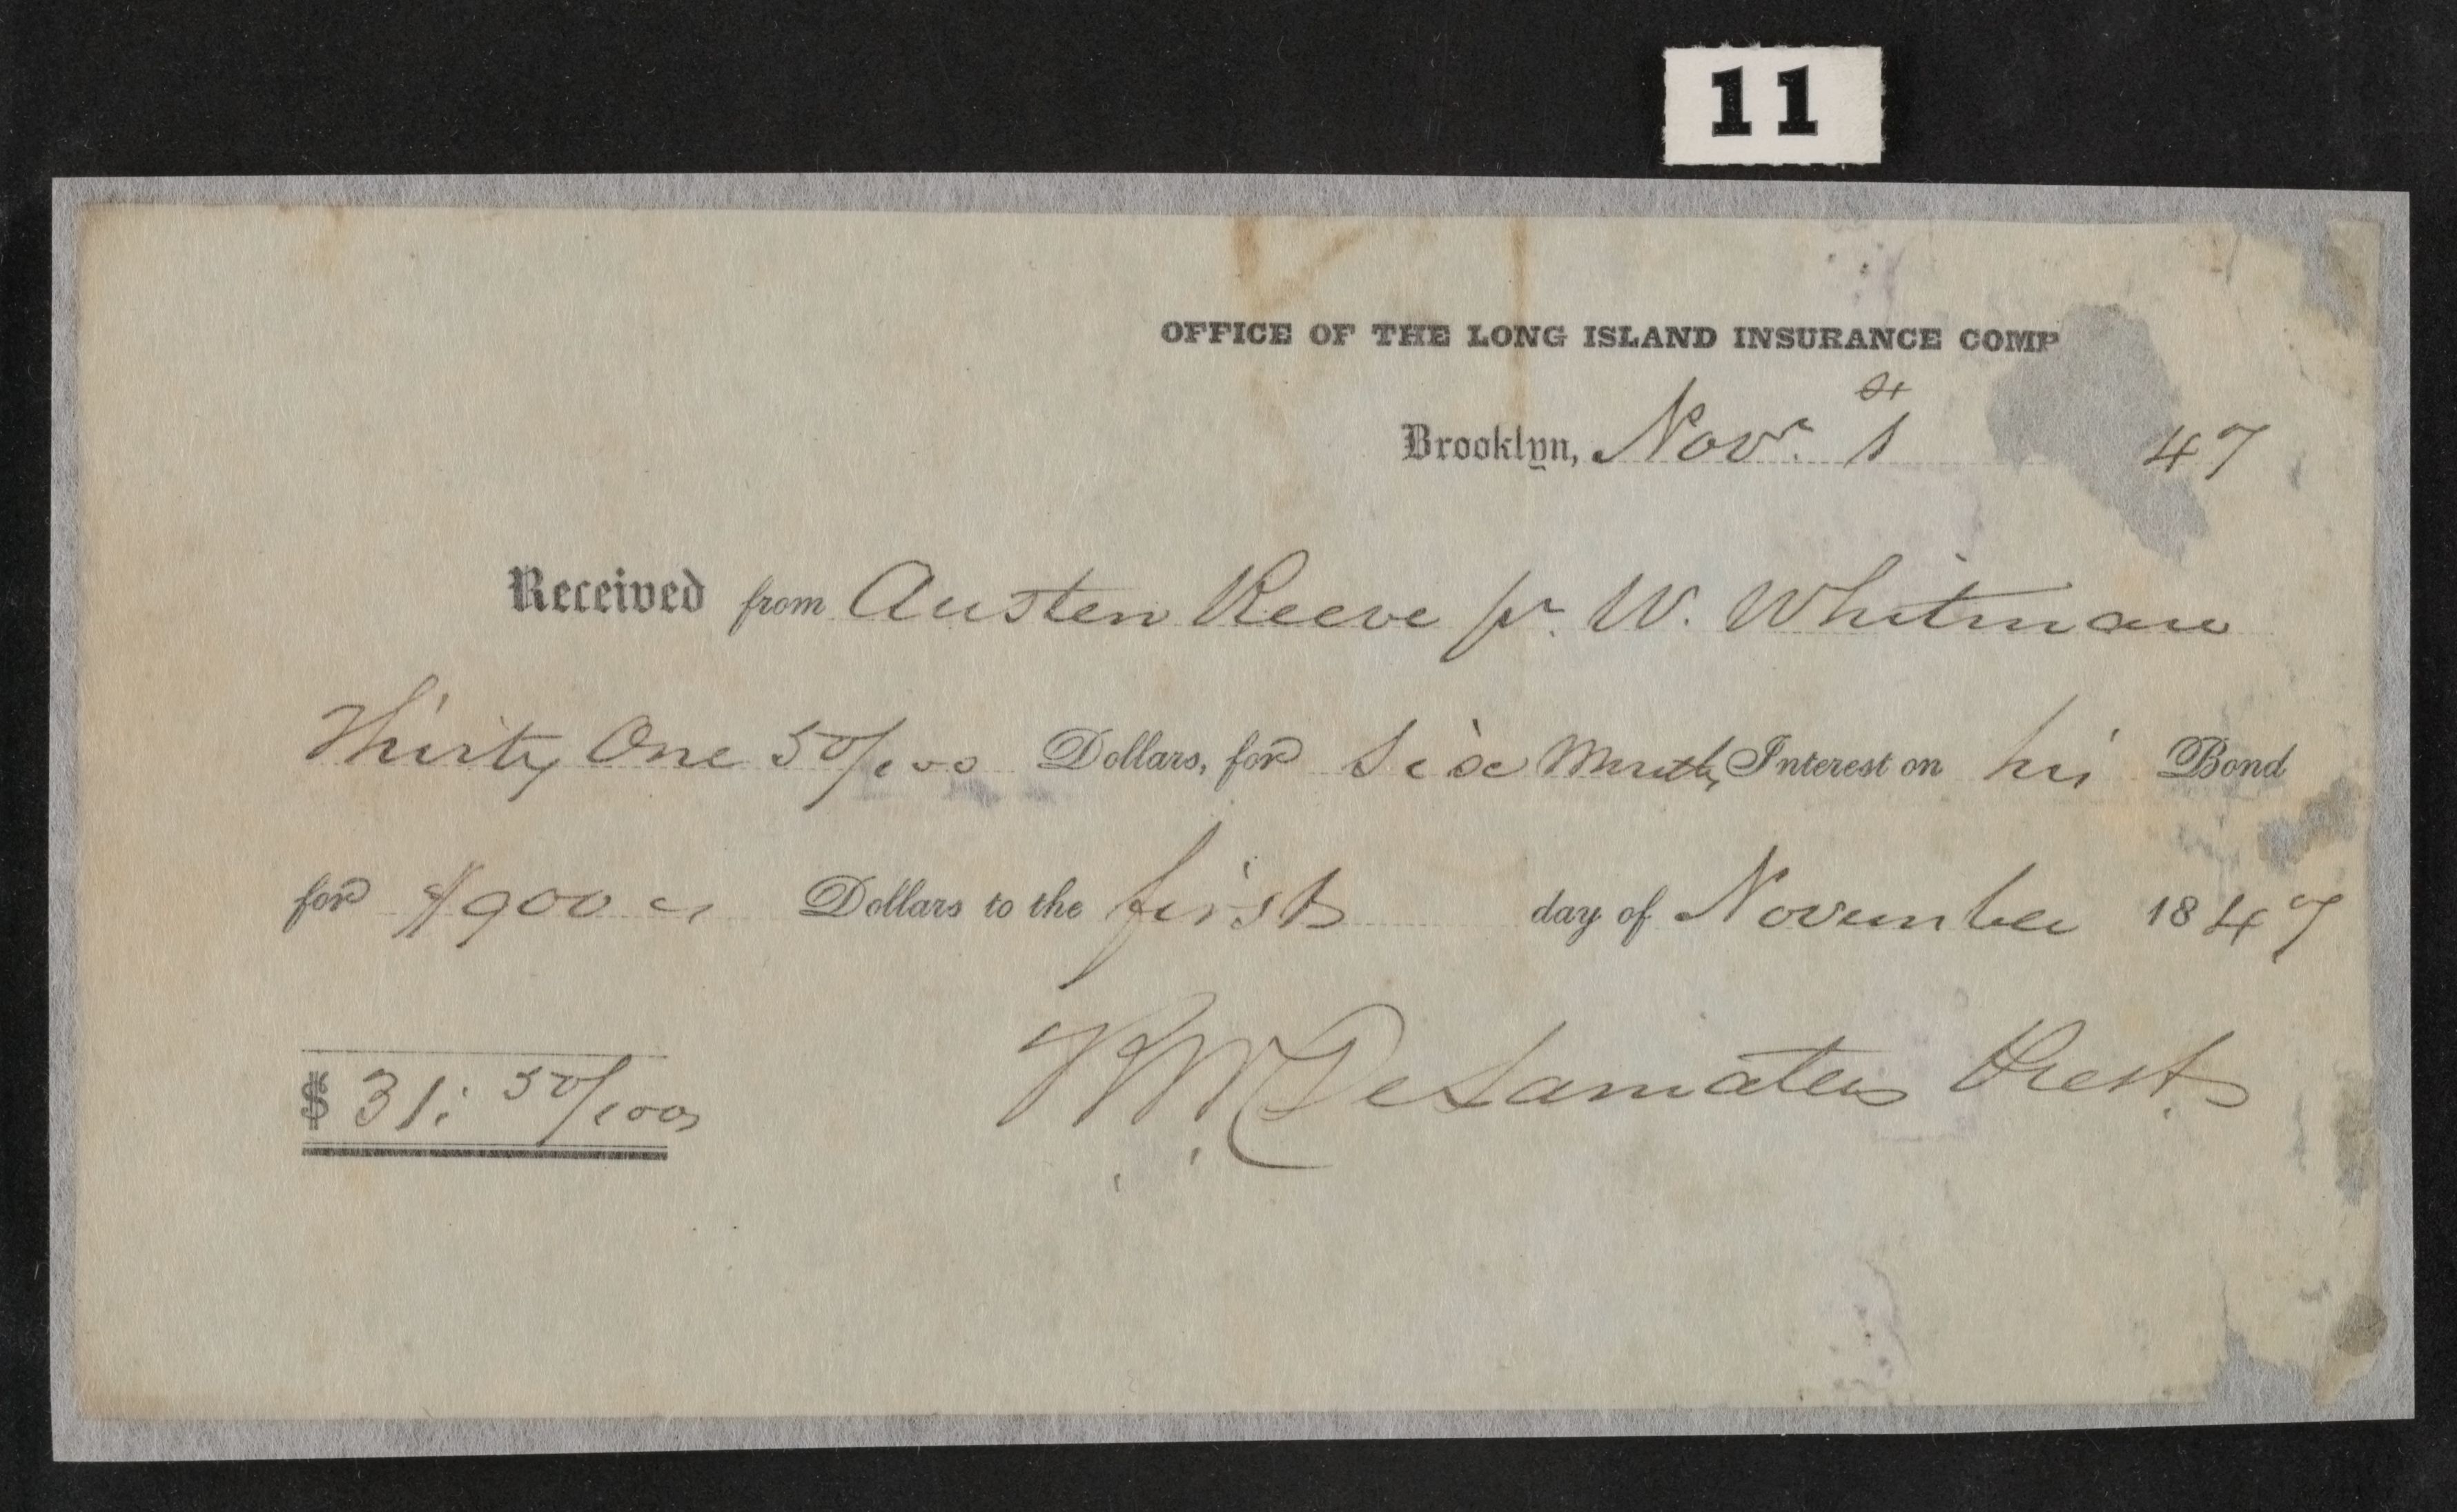 11
OFFICE OF THE LONG ISLAND INSURANCE COMP
Brooklyn, Novr. 1st 47
Received from Austen Reeve pr. W. Whitman
Thirty One 50/100 Dollars, for Six Months Interest on his Bond
for $900 Dollars to the first day of November 1847
$31: 50/100 DeLamater Prest.